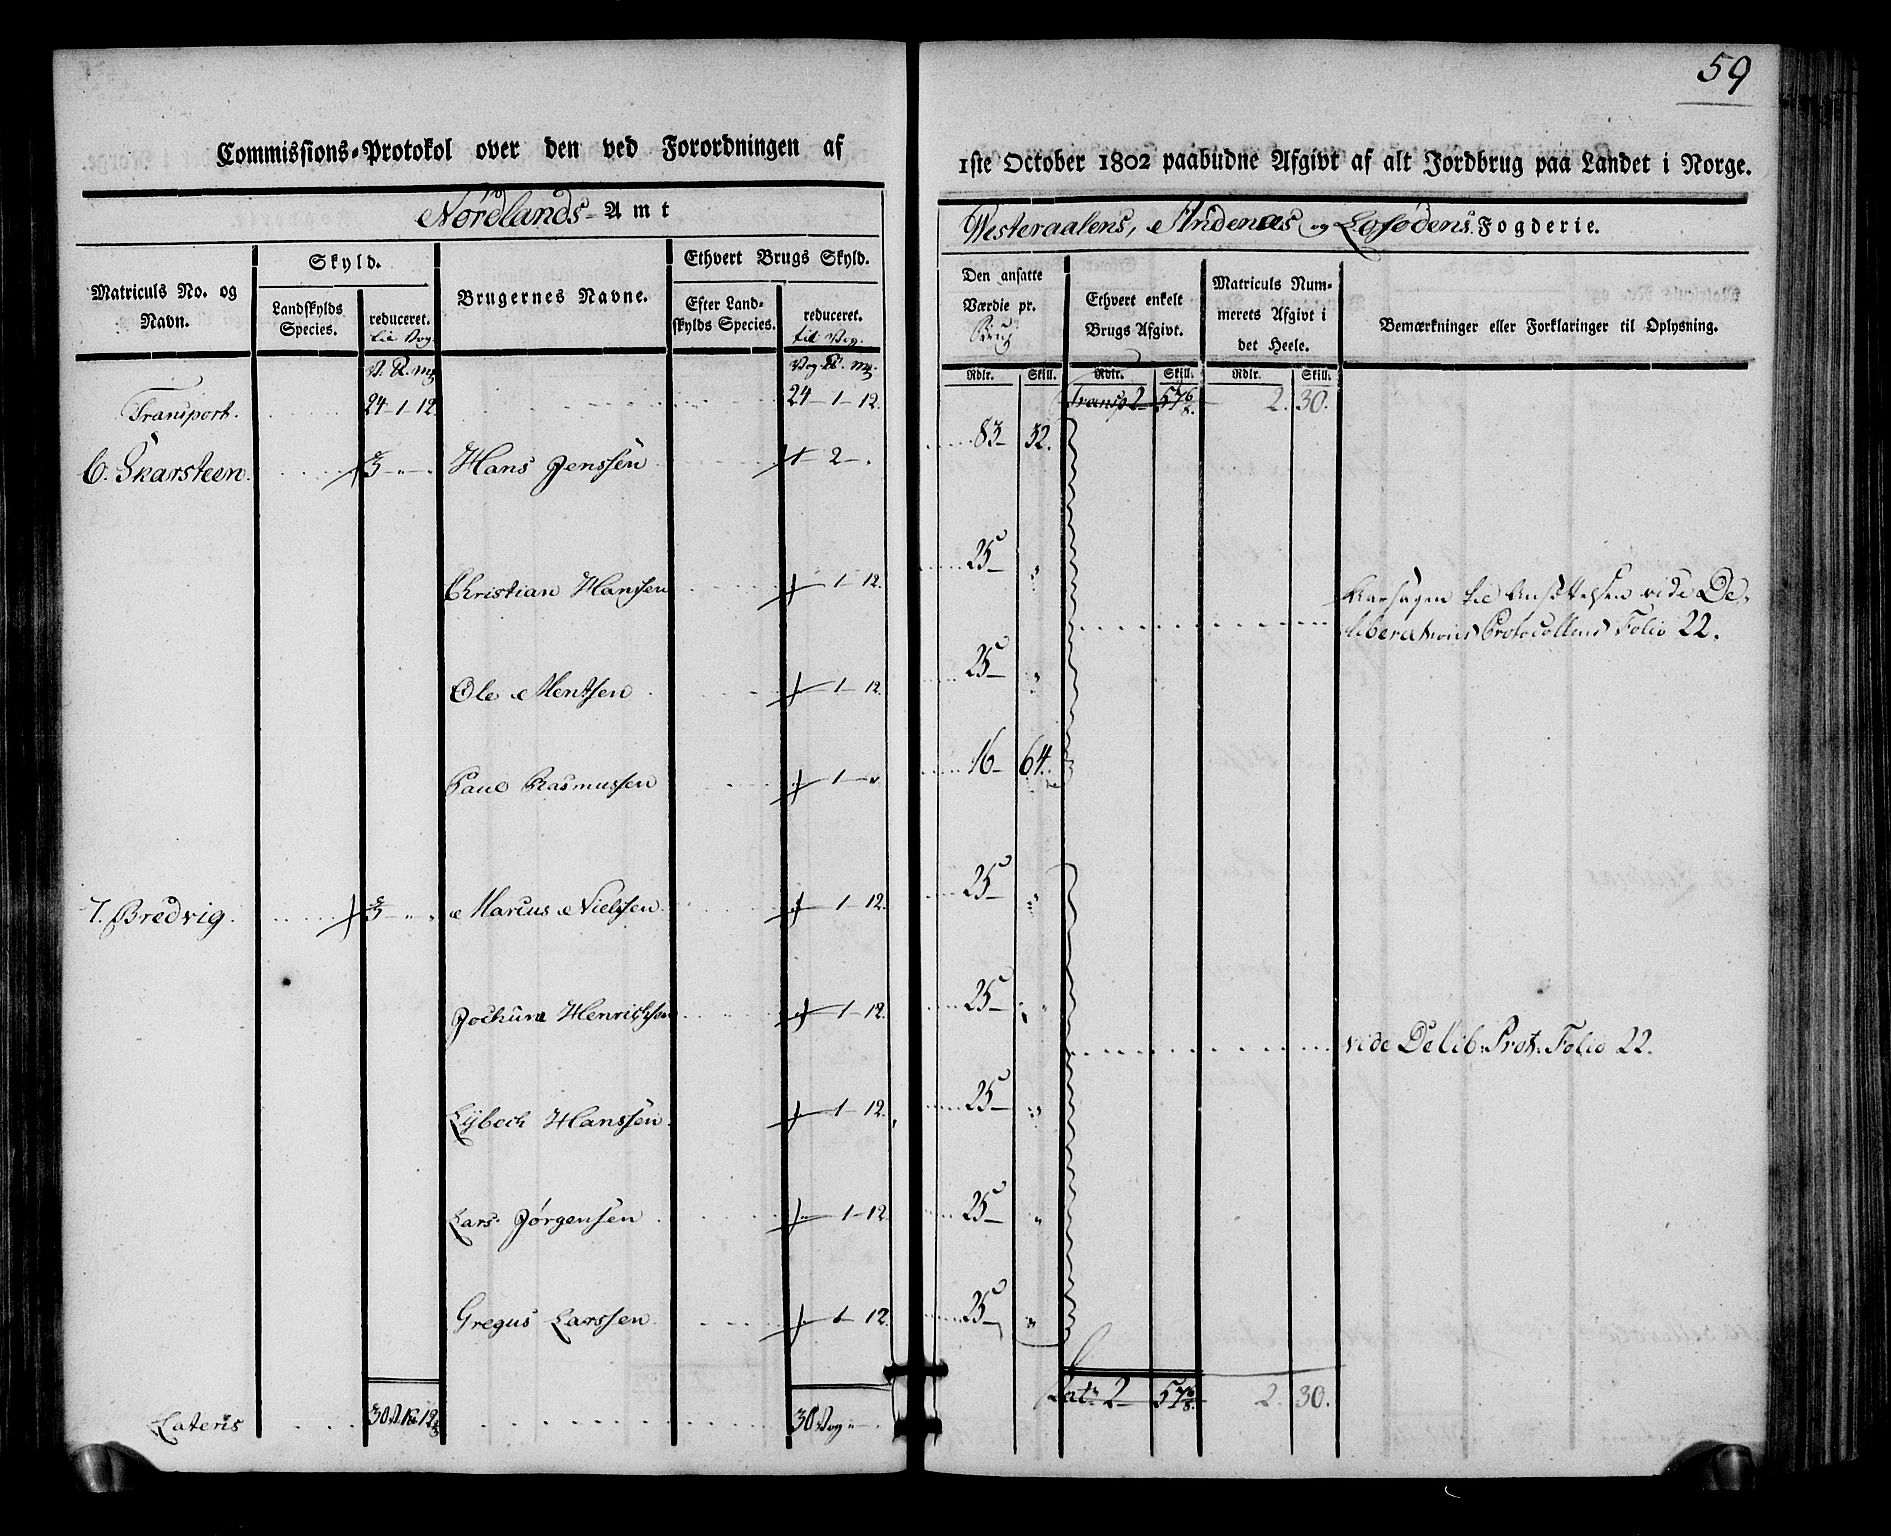 59
Commissions-Protokol over den ved Forordningen af
1ste October 1802 paabudne Afgivt af alt Jordbrug paa Landet i Norge.
Nordlands-Amt
Westeraalens, Andenæs og Lofodens Fogderie.
Matriculs No. og Navn.
Skyld.
Landskylds Species.
reduceret. til Vog.
Brugernes Navne.
Ethvert Brugs Skyld.
Efter Landskylds Species.
reduceret. til Vog.
Den ansatte Værdie pr. Brug
Ethvert enkelt Brugs Afgivt.
Matriculs Nummerets Afgivt i det Heele.
Bemærkninger eller Forklaringer til Oplysning.
Rdlr. Skill. Rdlr. Skill. Rdlr. Skill.
Transport. 24-1-12 24-1-12. Transp 2 57 6/8. 2. 30.
6. Skarsteen. 3 Hans Jenssen 1-2-" 83- 32.
Christian Hanssen 1-12. 25- "
Aarsagen til Ansættelsen vide De-
liberations Protocollens Folio 22.
Ole Mentsen 1-12 25- "
Paul Rasmussen 1-" 16- 64.
7. Bredvig. 3 Marcus Nielssen 1-12. 25- "
Jochum Henrichsen 1-12. 25- "
vide Delib: Prot: Folio 22.
Lÿbech Hanssen 1-12. 25- "
Lars Jørgensen 1-12. 25- "
Gregus Larssen 1-12. 25- "
Lateris 30 30 Vog Lat: 2 57 6/8. 2. 30.